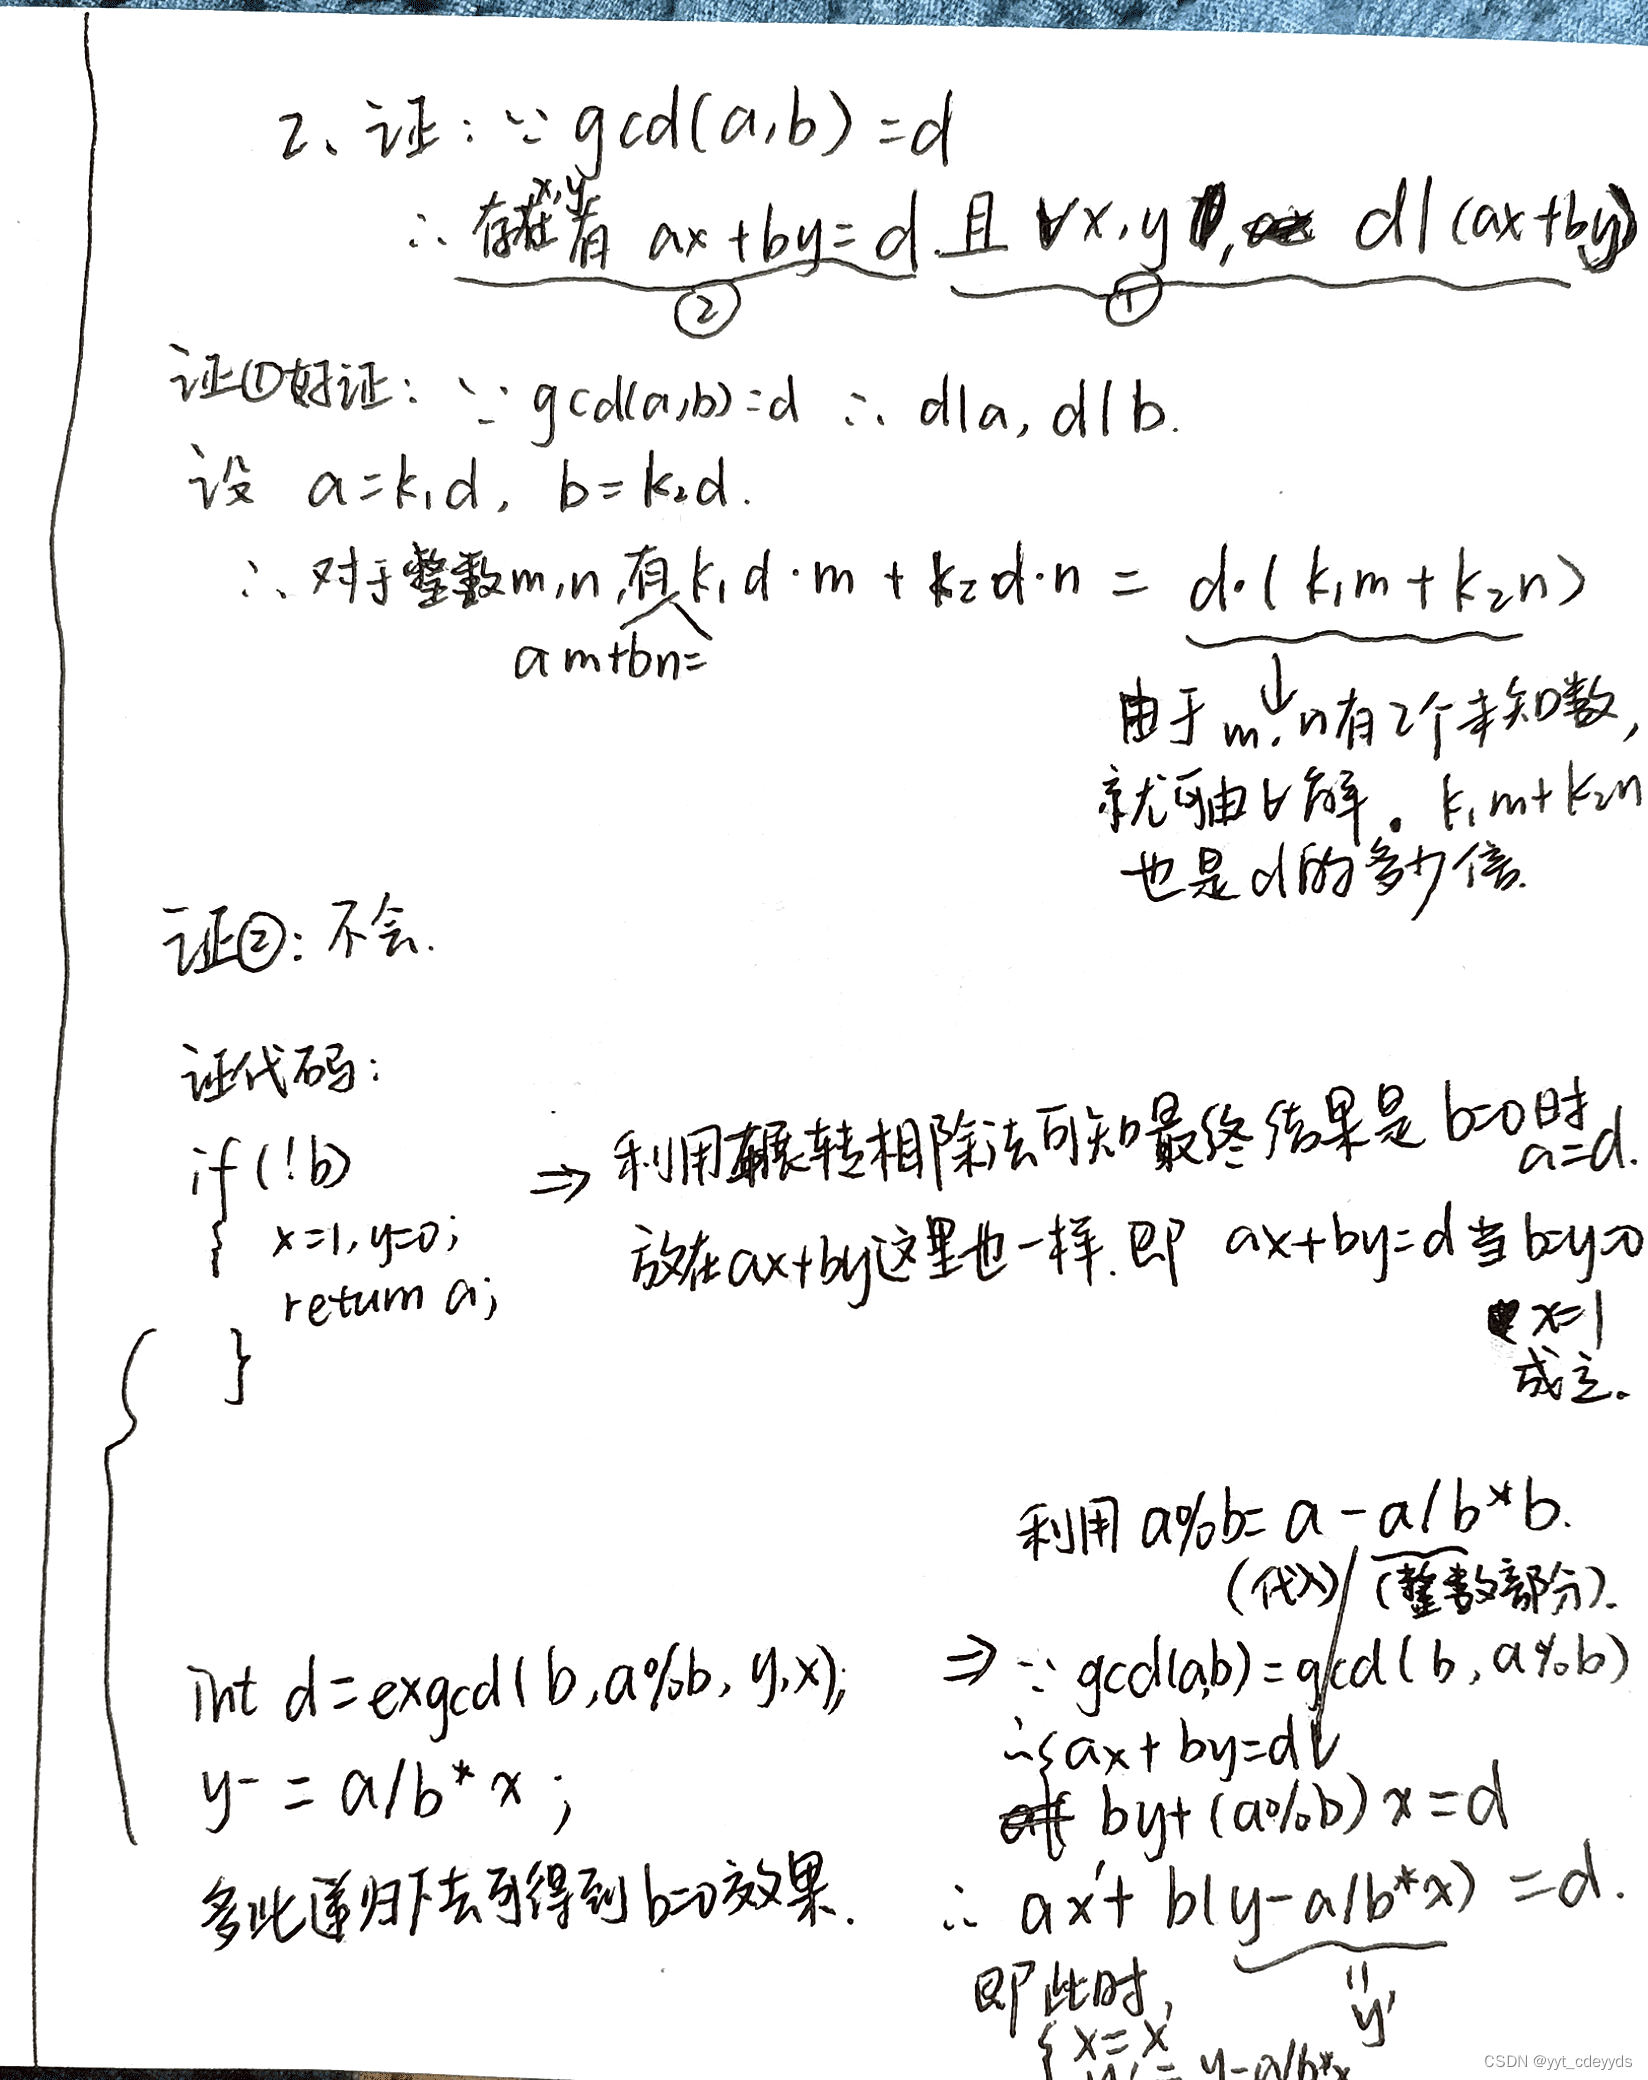 2、证：∵ gcd(a,b)=d
∴ 存在x,y有 ax+by=d 且 ∀x,y, d|(ax+by)
② ①
证①好证：∵ gcd(a,b)=d ∴ d|a, d|b.
设 a=k₁d, b=k₂d.
∴ 对于整数m,n,有 k₁d·m + k₂d·n = d·(k₁m+k₂n)
am+bn=
由于m,n有2个未知数,
就可由∀解。k₁m+k₂n
也是d的多少倍.
证②：不会.
证代码：
if(!b) ⇒ 利用辗转相除法可知最终结果是 b=0时
a=d.
{ x=1,y=0; 放在ax+by这里也一样.即 ax+by=d 当b=y=0
return a; x=1
} 成立.
利用 a%b= a-a/b*b.
(代入) (整数部分).
int d=exgcd(b,a%b,y,x); ⇒ ∵ gcd(a,b)=gcd(b,a%b)
∴{ax+by=d
y-=a/b*x; by+(a%b)x=d
多此递归下去可得到b=0效果. ∴ ax'+b(y-a/b*x)=d.
即此时, = y'
{x=x
y'=y-a/b*x
CSDN @yyt_cdeyyds